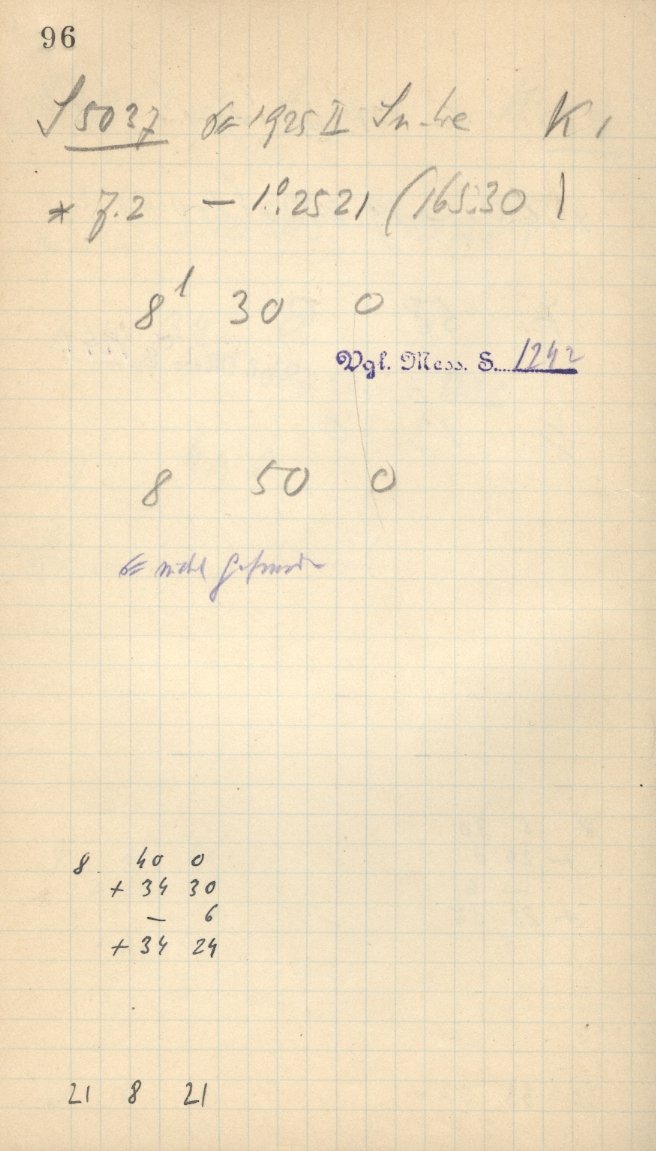 96
S 5037 1925 II K 1
* 7.2 – 1°.2521 (165.30)
8 30 0
Vgl. Mess. S. 1242
8 50 0
nicht gefunden
8 40 0
+ 34 30
– 6
+ 34 24
21 8 21